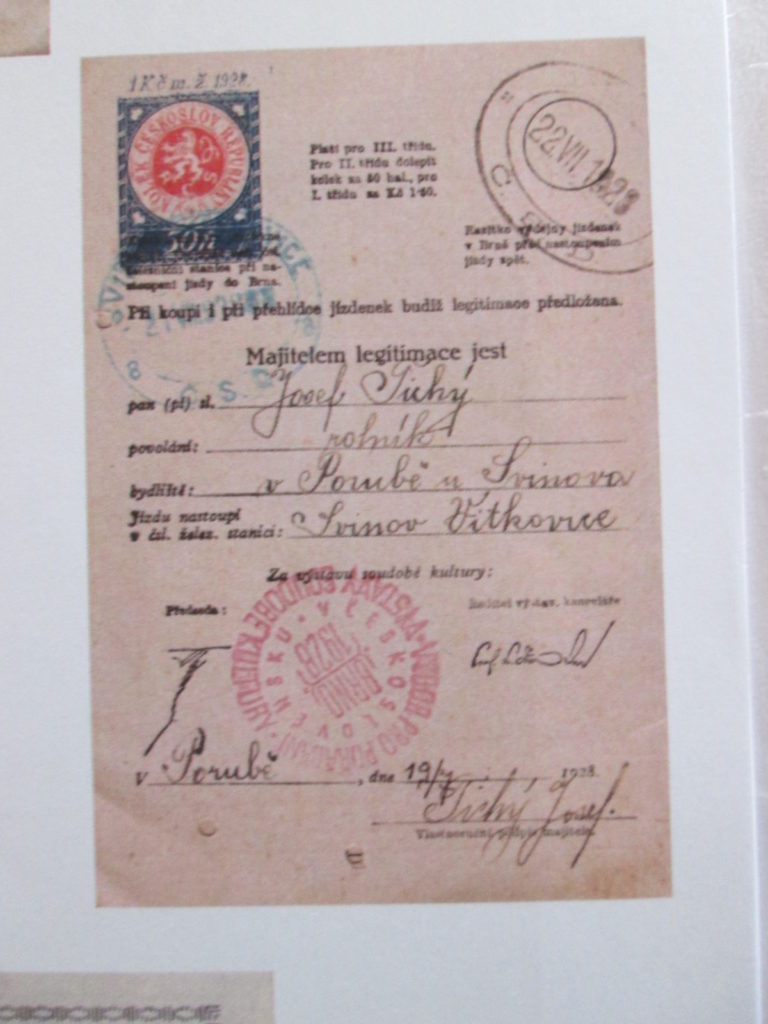 1 Kč m. ž. 1928.
KOLEK ČESKOSLOV. REPUBLIKY
50h
Platí pro III. třídu.
Pro II. třídu dolepit
kolek za 50 hal., pro
I. třídu za Kč 1·50.
22.VII.1928
Razítko výdejny jízdenek
v Brně před nastoupením
jízdy zpět.
železniční stanice při na-
stoupení jízdy do Brna.
Při koupi i při přehlídce jízdenek budiž legitimace předložena.
Majitelem legitimace jest
pan (pí) sl. Josef Tichý
povolání: rolník
bydliště: v Porubě u Svinova
Jízdu nastoupí
v čsl. želez. stanici: Svinov Vítkovice
Za výstavu soudobé kultury:
Předseda:
Ředitel výstav. kanceláře
VÝBOR PRO POŘÁDÁNÍ VÝSTAVY SOUDOBÉ KULTURY
V ČESKOSLOVENSKU
BRNO
1928
v Porubě, dne 19/7 1928.
Tichý Josef.
Vlastnoruční podpis majitele.